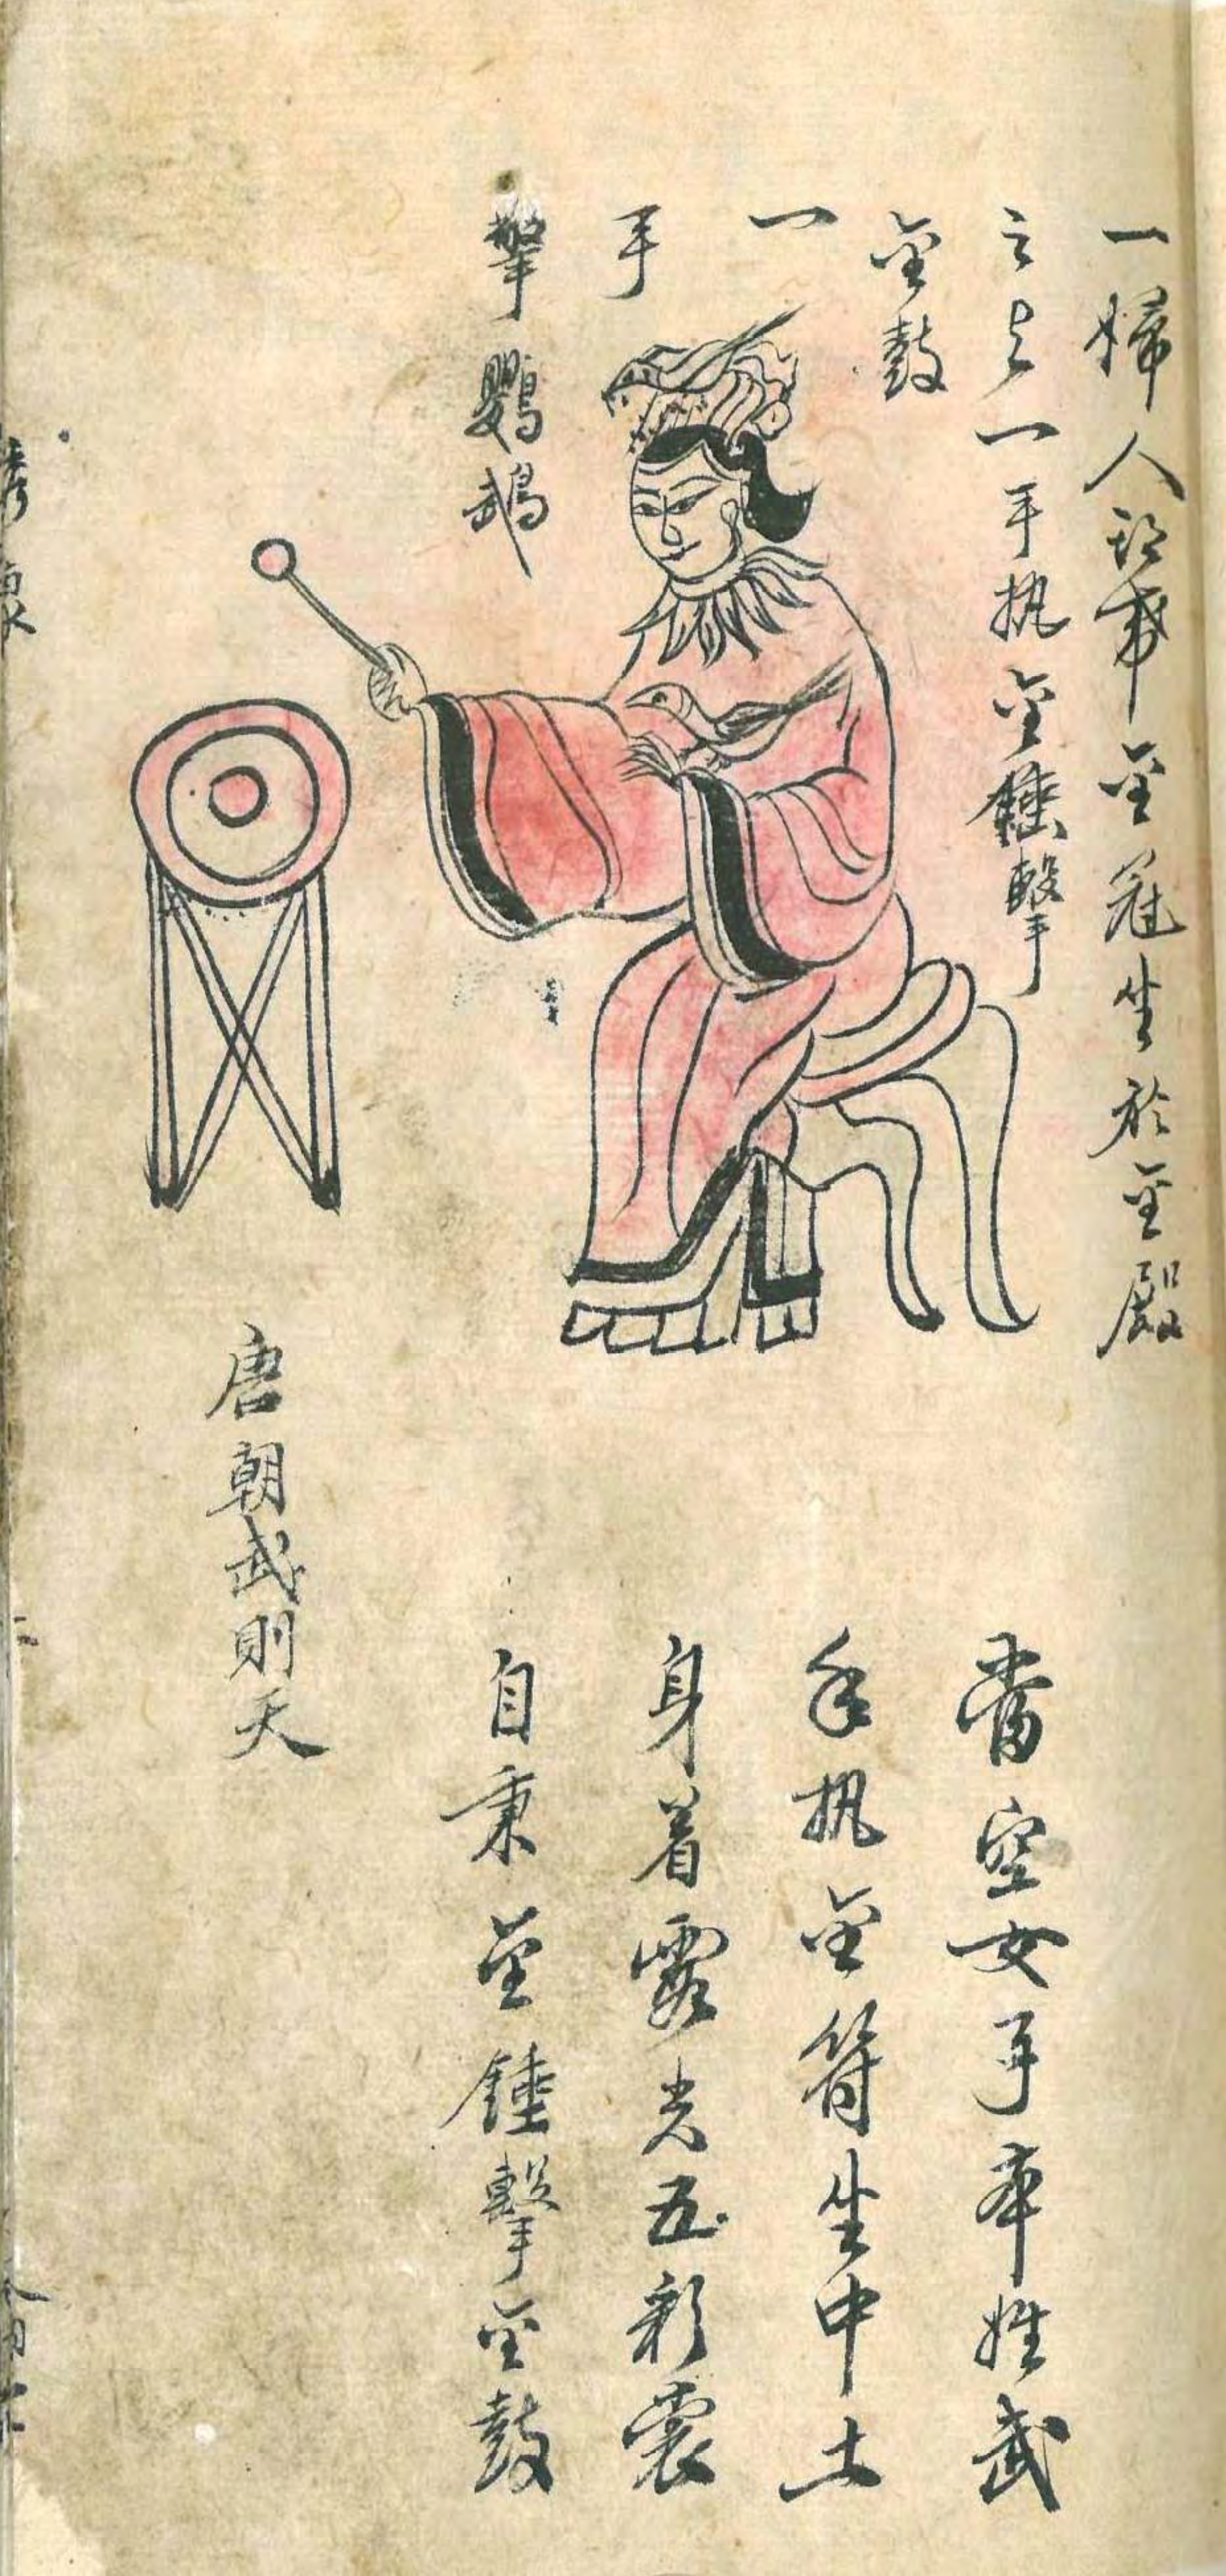 一婦人頭戴金冠坐於金殿
之上一手执金錘擊
金鼓
一
手
擎鸚鵡
當空女子本姓武
手执金符坐中土
身着霞光五彩裳
自秉金錘擊金鼓
唐朝武則天